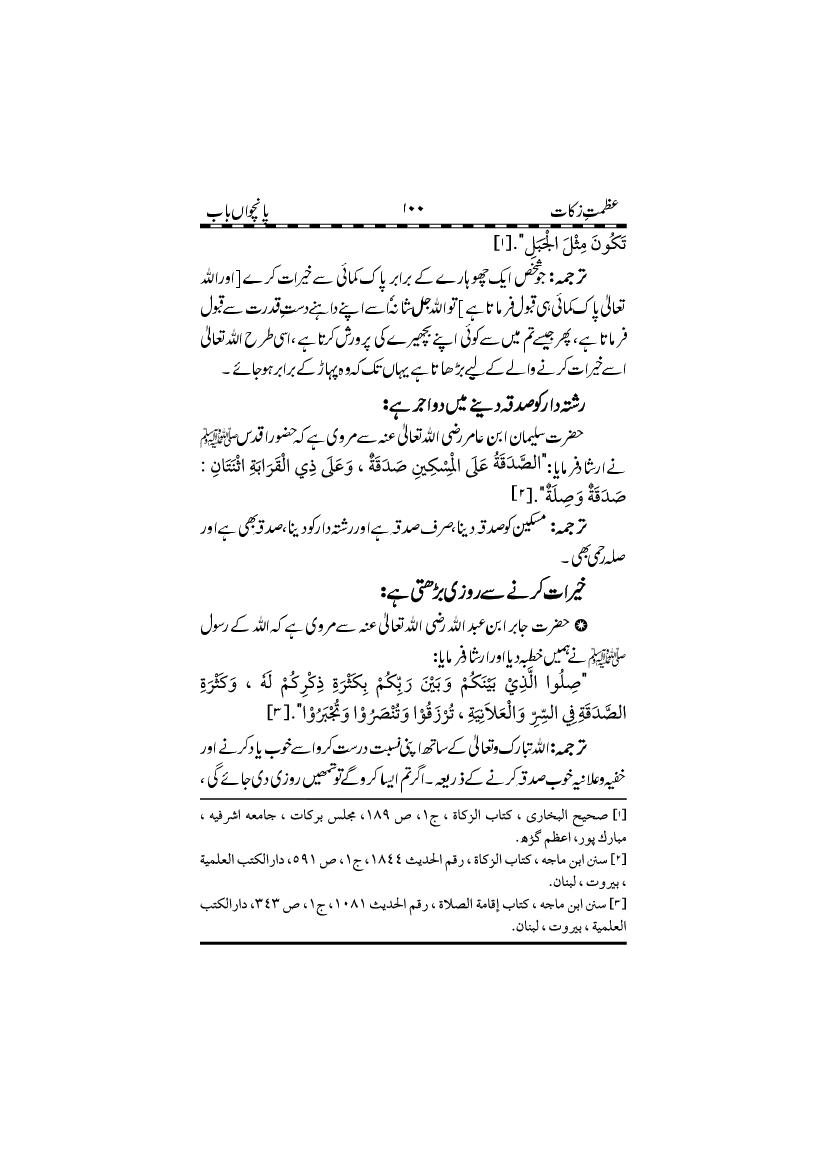 عظمتِ زکات ۱۰۰ پانچواں باب
تَكُونَ مِثْلَ الْجَبَلِ".[۱]
ترجمہ: جو شخص ایک چھوہارے کے برابر پاک کمائی سے خیرات کرے [اور اللہ
تعالیٰ پاک کمائی ہی قبول فرماتا ہے] تو اللہ جل شانہٗ اسے اپنے داہنے دستِ قدرت سے قبول
فرماتا ہے، پھر جیسے تم میں سے کوئی اپنے بچھیرے کی پرورش کرتا ہے، اسی طرح اللہ تعالیٰ
اسے خیرات کرنے والے کے لیے بڑھاتا ہے یہاں تک کہ وہ پہاڑ کے برابر ہو جائے۔
رشتہ دار کو صدقہ دینے میں دو اجر ہے:
حضرت سلیمان ابن عامر رضی اللہ تعالیٰ عنہ سے مروی ہے کہ حضور اقدس ﷺ
نے ارشاد فرمایا: "الصَّدَقَةُ عَلَى الْمِسْكِينِ صَدَقَةٌ ، وَعَلَى ذِي الْقَرَابَةِ اثْنَتَانِ :
صَدَقَةٌ وَصِلَةٌ".[۲]
ترجمہ: مسکین کو صدقہ دینا، صرف صدقہ ہے اور رشتہ دار کو دینا، صدقہ بھی ہے اور
صلہ رحمی بھی۔
خیرات کرنے سے روزی بڑھتی ہے:
✪ حضرت جابر ابن عبد اللہ رضی اللہ تعالیٰ عنہ سے مروی ہے کہ اللہ کے رسول
ﷺ نے ہمیں خطبہ دیا اور ارشاد فرمایا:
"صِلُوا الَّذِيْ بَيْنَكُمْ وَبَيْنَ رَبِّكُمْ بِكَثْرَةِ ذِكْرِكُمْ لَهُ ، وَكَثْرَةِ
الصَّدَقَةِ فِي السِّرِّ وَالْعَلَانِيَةِ ، تُرْزَقُوْا وَتُنْصَرُوْا وَتُجْبَرُوْا".[۳]
ترجمہ: اللہ تبارک و تعالیٰ کے ساتھ اپنی نسبت درست کرو اسے خوب یاد کرنے اور
خفیہ و علانیہ خوب صدقہ کرنے کے ذریعہ۔ اگر تم ایسا کرو گے تو تمھیں روزی دی جائے گی،
[۱] صحيح البخاري ، كتاب الزكاة ، ج۱، ص ۱۸۹، مجلس بركات ، جامعه اشرفيه ،
مبارك پور، اعظم گڑھ.
[۲] سنن ابن ماجه ، كتاب الزكاة ، رقم الحديث ۱۸٤٤، ج۱، ص ٥۹۱، دارالكتب العلمية
، بيروت ، لبنان.
[۳] سنن ابن ماجه ، كتاب إقامة الصلاة ، رقم الحديث ۱۰۸۱، ج۱، ص ۳٤۳، دارالكتب
العلمية ، بيروت ، لبنان.